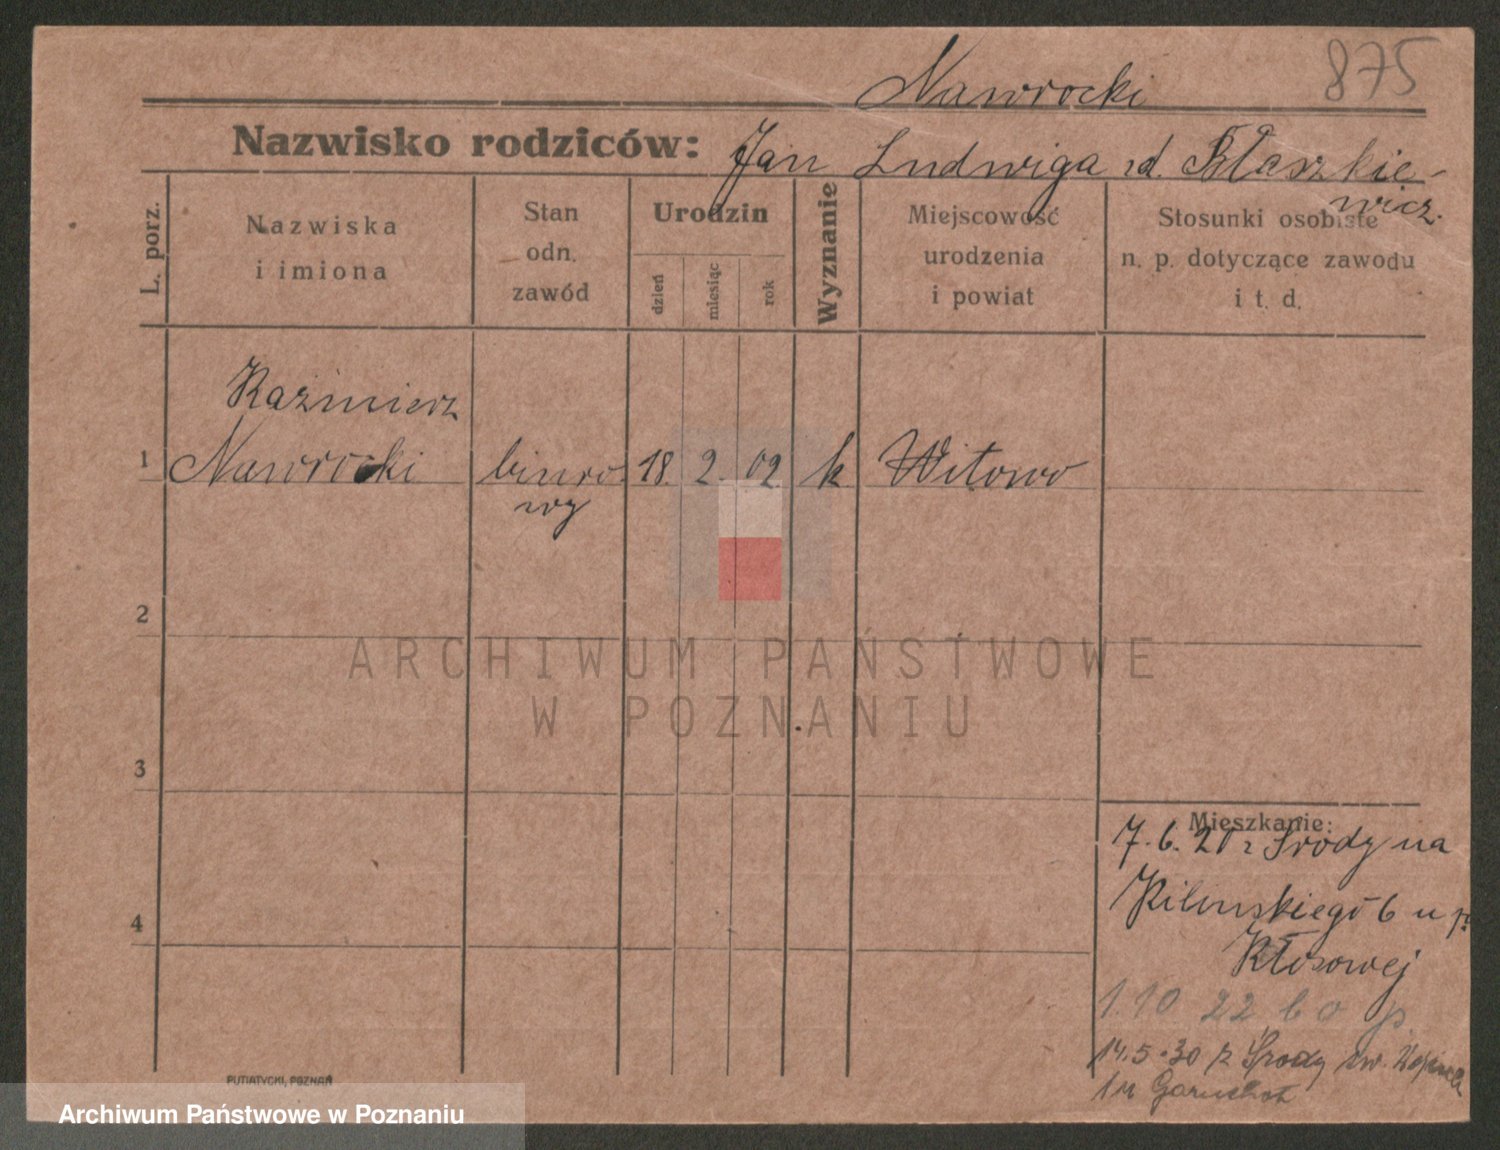 875
Nawrocki
Nazwisko rodziców: Jan Ludwiga zd. Błaszkie-
wicz.
L. porz.
Nazwiska
i imiona
Stan
odn.
zawód
Urodzin
dzień
miesiąc
rok
Wyznanie
Miejscowość
urodzenia
i powiat
Stosunki osobiste
n. p. dotyczące zawodu
i t. d.
Kaźmierz
1 Nawrocki biuro- 18. 2. 02 k Witowo
wy
2
3
4
ARCHIWUM PAŃSTWOWE
W POZNANIU
Mieszkanie:
7.6. z Środy na
6 u p.
Kłosowej
1.10 22 p.
14.5.30 z Środy
1 u
PUTIATYCKI, POZNAŃ
Archiwum Państwowe w Poznaniu